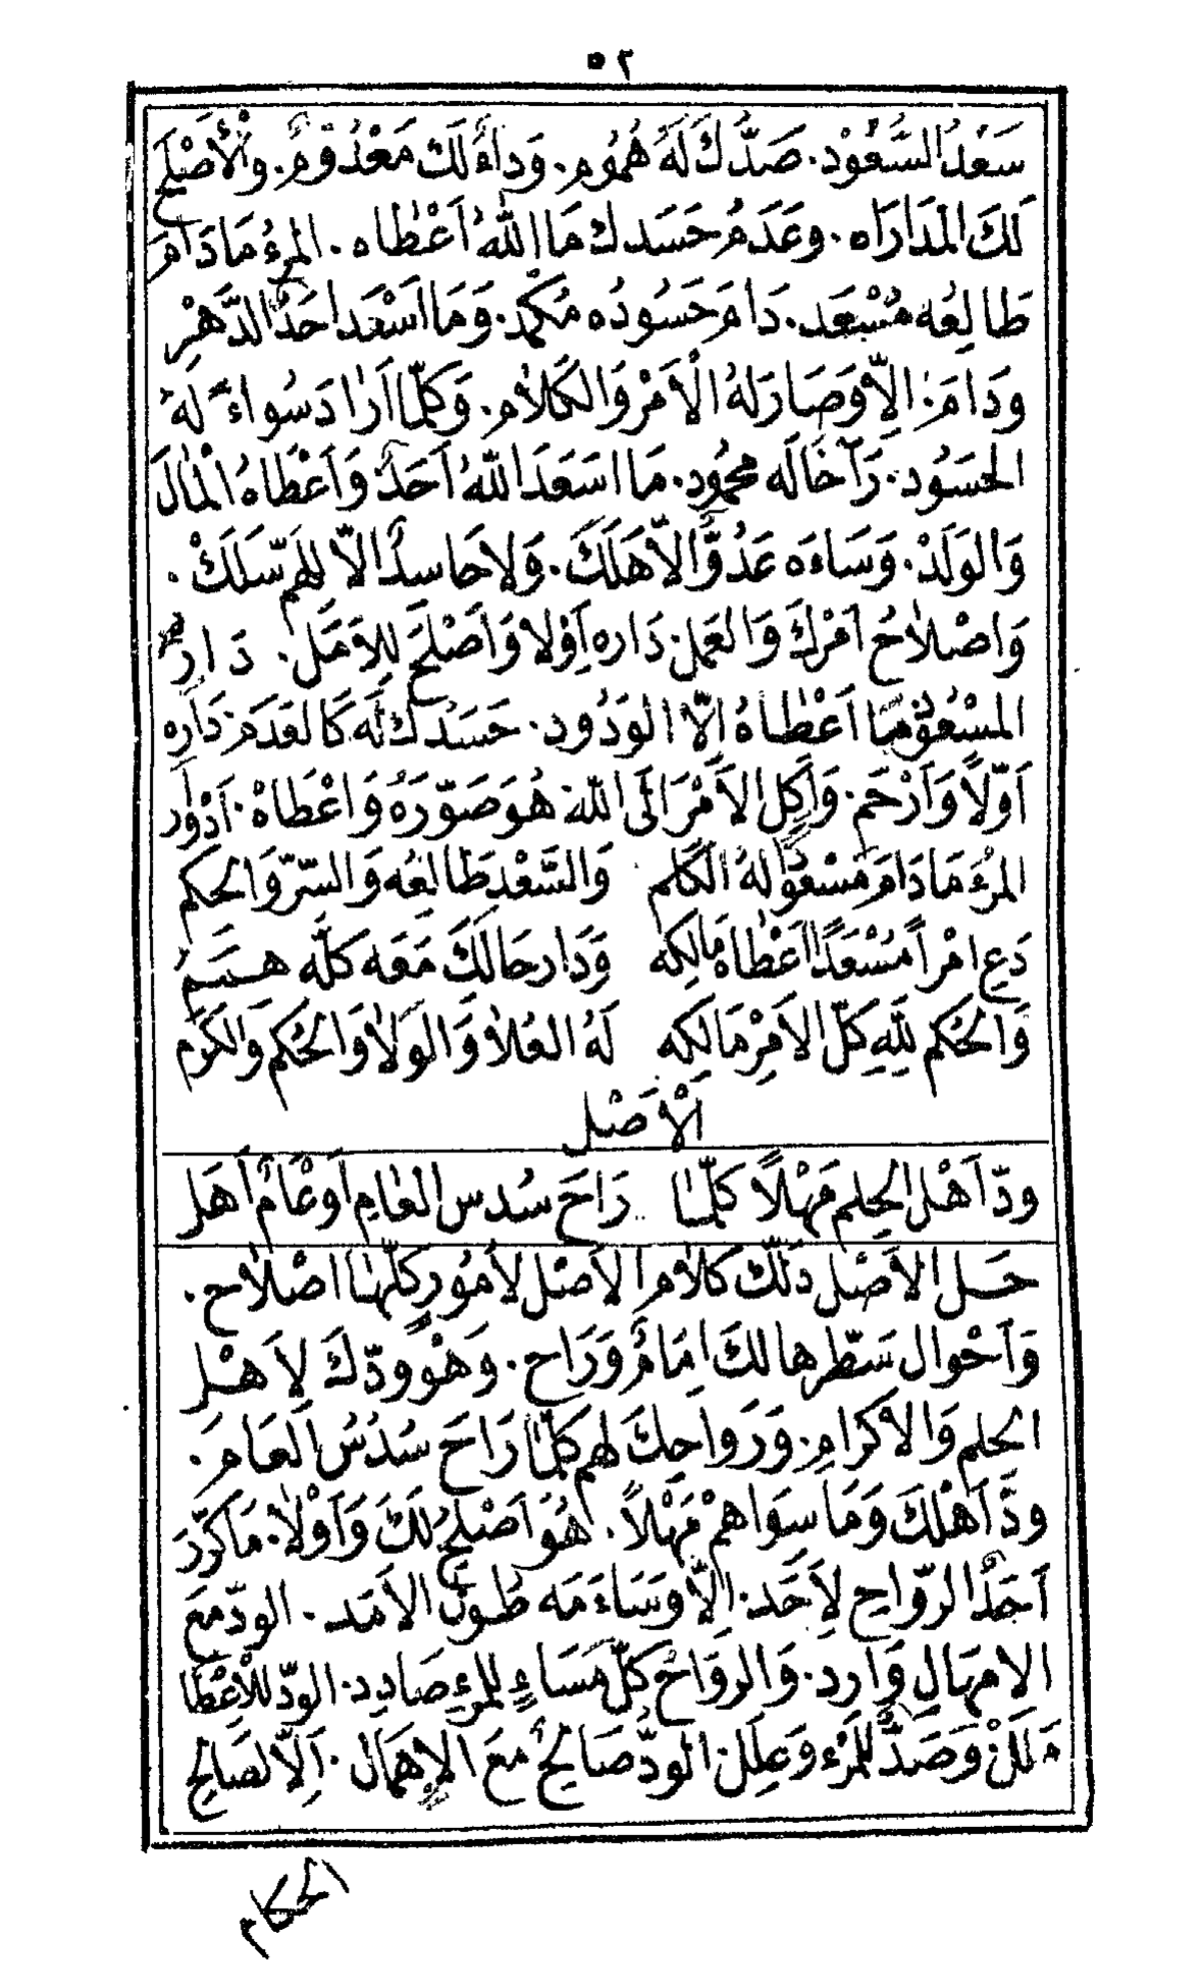 ٥٢
سَعْدُ السُّعُوْد. صَدُّكَ لَهُ هُمُوم. وَدَاءٌ لَكَ مَعْدُوْمٌ. وَالْأَصْلَحُ
لَكَ المدَارَاه. وعَدَمُ حَسَدِكَ مَا اللّٰهُ اَعْطَاه. المرءُ مَا دَامَ
طَالِعُه مُسْعَد. دَامَ حَسُودُه مُكْمَد. وَمَا اَسْعَدَ احَدٌ الدَّهْرِ
ودَامَ. اِلّا وَصَارَ لَهُ الْاَمْرُ وَالكَلَام. وَكلّما اَرَادَ سُواءً لَهُ
الحَسُود. رَآ حَالَه محمُود. مَا اسَعَدَ اللّٰهُ اَحَدٌ وَاَعْطَاهُ الْمَالَ
وَالوَلَدْ. وَسَاءَه عَدُوٌّ اِلاّ هَلَكَ. وَلاَ حَاسِدٌ الاّ لِلهَمّ سَلَكْ.
وَاصْلاحُ اَمْرِكَ وَالعَمل. دَارِه اَوْلا وَاَصْلَحَ لِلاَمَل. دَارِ
المسْعُود مَا اَعْطَاهُ اِلّا الوَدُود. حَسَدُكَ لَه كَالعَدَم. دَارِه
اَوّلاً وَاَرْحَم. وَاَكِل الاَمْرَ اِلَى اللّٰه هُوَ صَوَّرَهُ وَاَعْطَاهْ. اَدْوَار
المرْءُ مَا دَامَ مَسْعُودًا لَهُ الكَلم وَالسَّعْد طَالعُه وَالسرّ وَالحكَم
دَعِ امْراً مُسْعَدًا اَعْطَاهُ مَالِكِه وَدَارِ حَالَكَ مَعَه كَلّه هِمَمُ
وَالحُكم لِلّٰهِ كلّ الاَمْرِ مَالِكِه لَهُ العُلا وَالوَلاَ وَالحُكم وَالكَرَم
اَلْاَصْل
ودّ اَهْل الحِلم مَهْلاً كلّمَا رَاحَ سُدس العَامِ اَو عَامٌ اَهَل
حَلّ الاَصْل دَلَّك كَلام الاَصْل لاُمُورٍ كلّهَا اصْلاح.
وَاَحْوال سَطّرها لكَ اِمَامٌ وَرَاح. وَهْوَ ودّكَ لاَهْل
الحلم وَالاكرَامِ. وَرَواحكَ لهم كلّمَا رَاحَ سُدُسُ العَامَ.
ودَّ اَهْلكَ وَمَا سِوَاهمْ مَهْلاً. هُوَ اَصْلَحُ لَكَ وَاَوْلا. مَا كَرّرَ
اَحَدٌ الرّوَاحِ لِاَحَد. اِلّا وَسَاءَمَه طُولُ الاَمَد. الودّ مَعَ
الامهَالِ وَارِد. وَالروَاحُ كلّ مَسَاءٍ لِلمرءِ صَادِد. الودّ للْاَعْطَا
مَلَلٌ وَصَدٌّ لِلمَرْء وَعِلَل. الودُّ صَالِحٌ مَعَ الاِهمَال. اِلاّ لصَالِح
الحكام